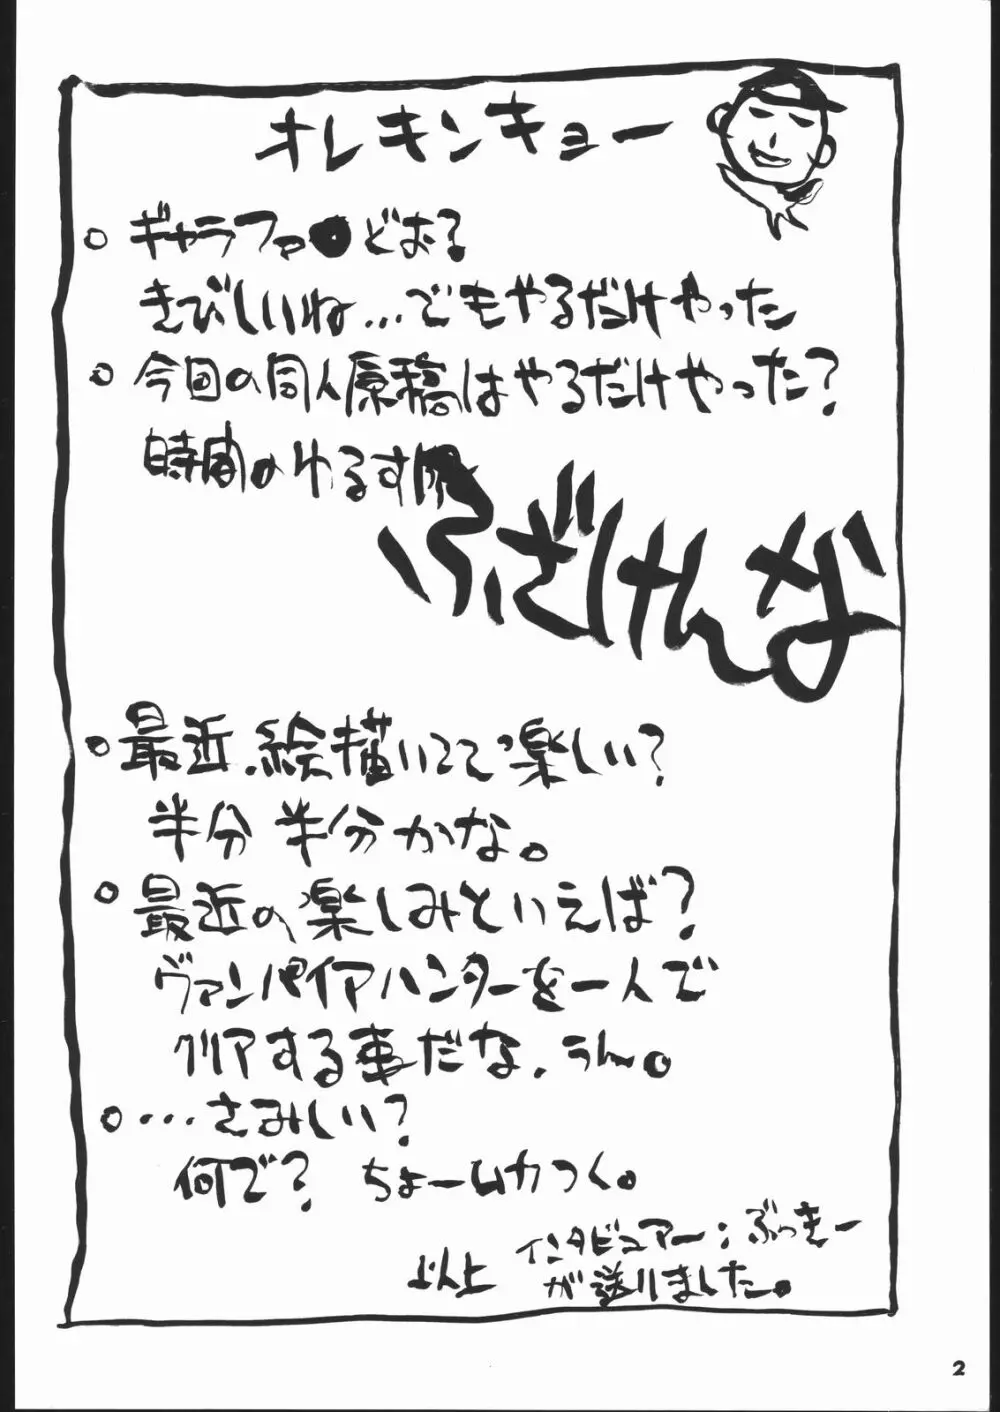 オレキンキョー
○ギャラファ●どお?
きびしいね…でもやるだけやった
○今回の同人原稿はやるだけやった?
時間のゆるす限
ふざけんな
○最近、絵描いてて楽しい?
半分半分かな。
○最近の楽しみといえば?
ヴァンパイアハンターを一人で
クリアする事だな、うん。
○…さみしい?
何で? ちょームカつく。
インタビュアー:ぶっきー
以上 が送りました。
2